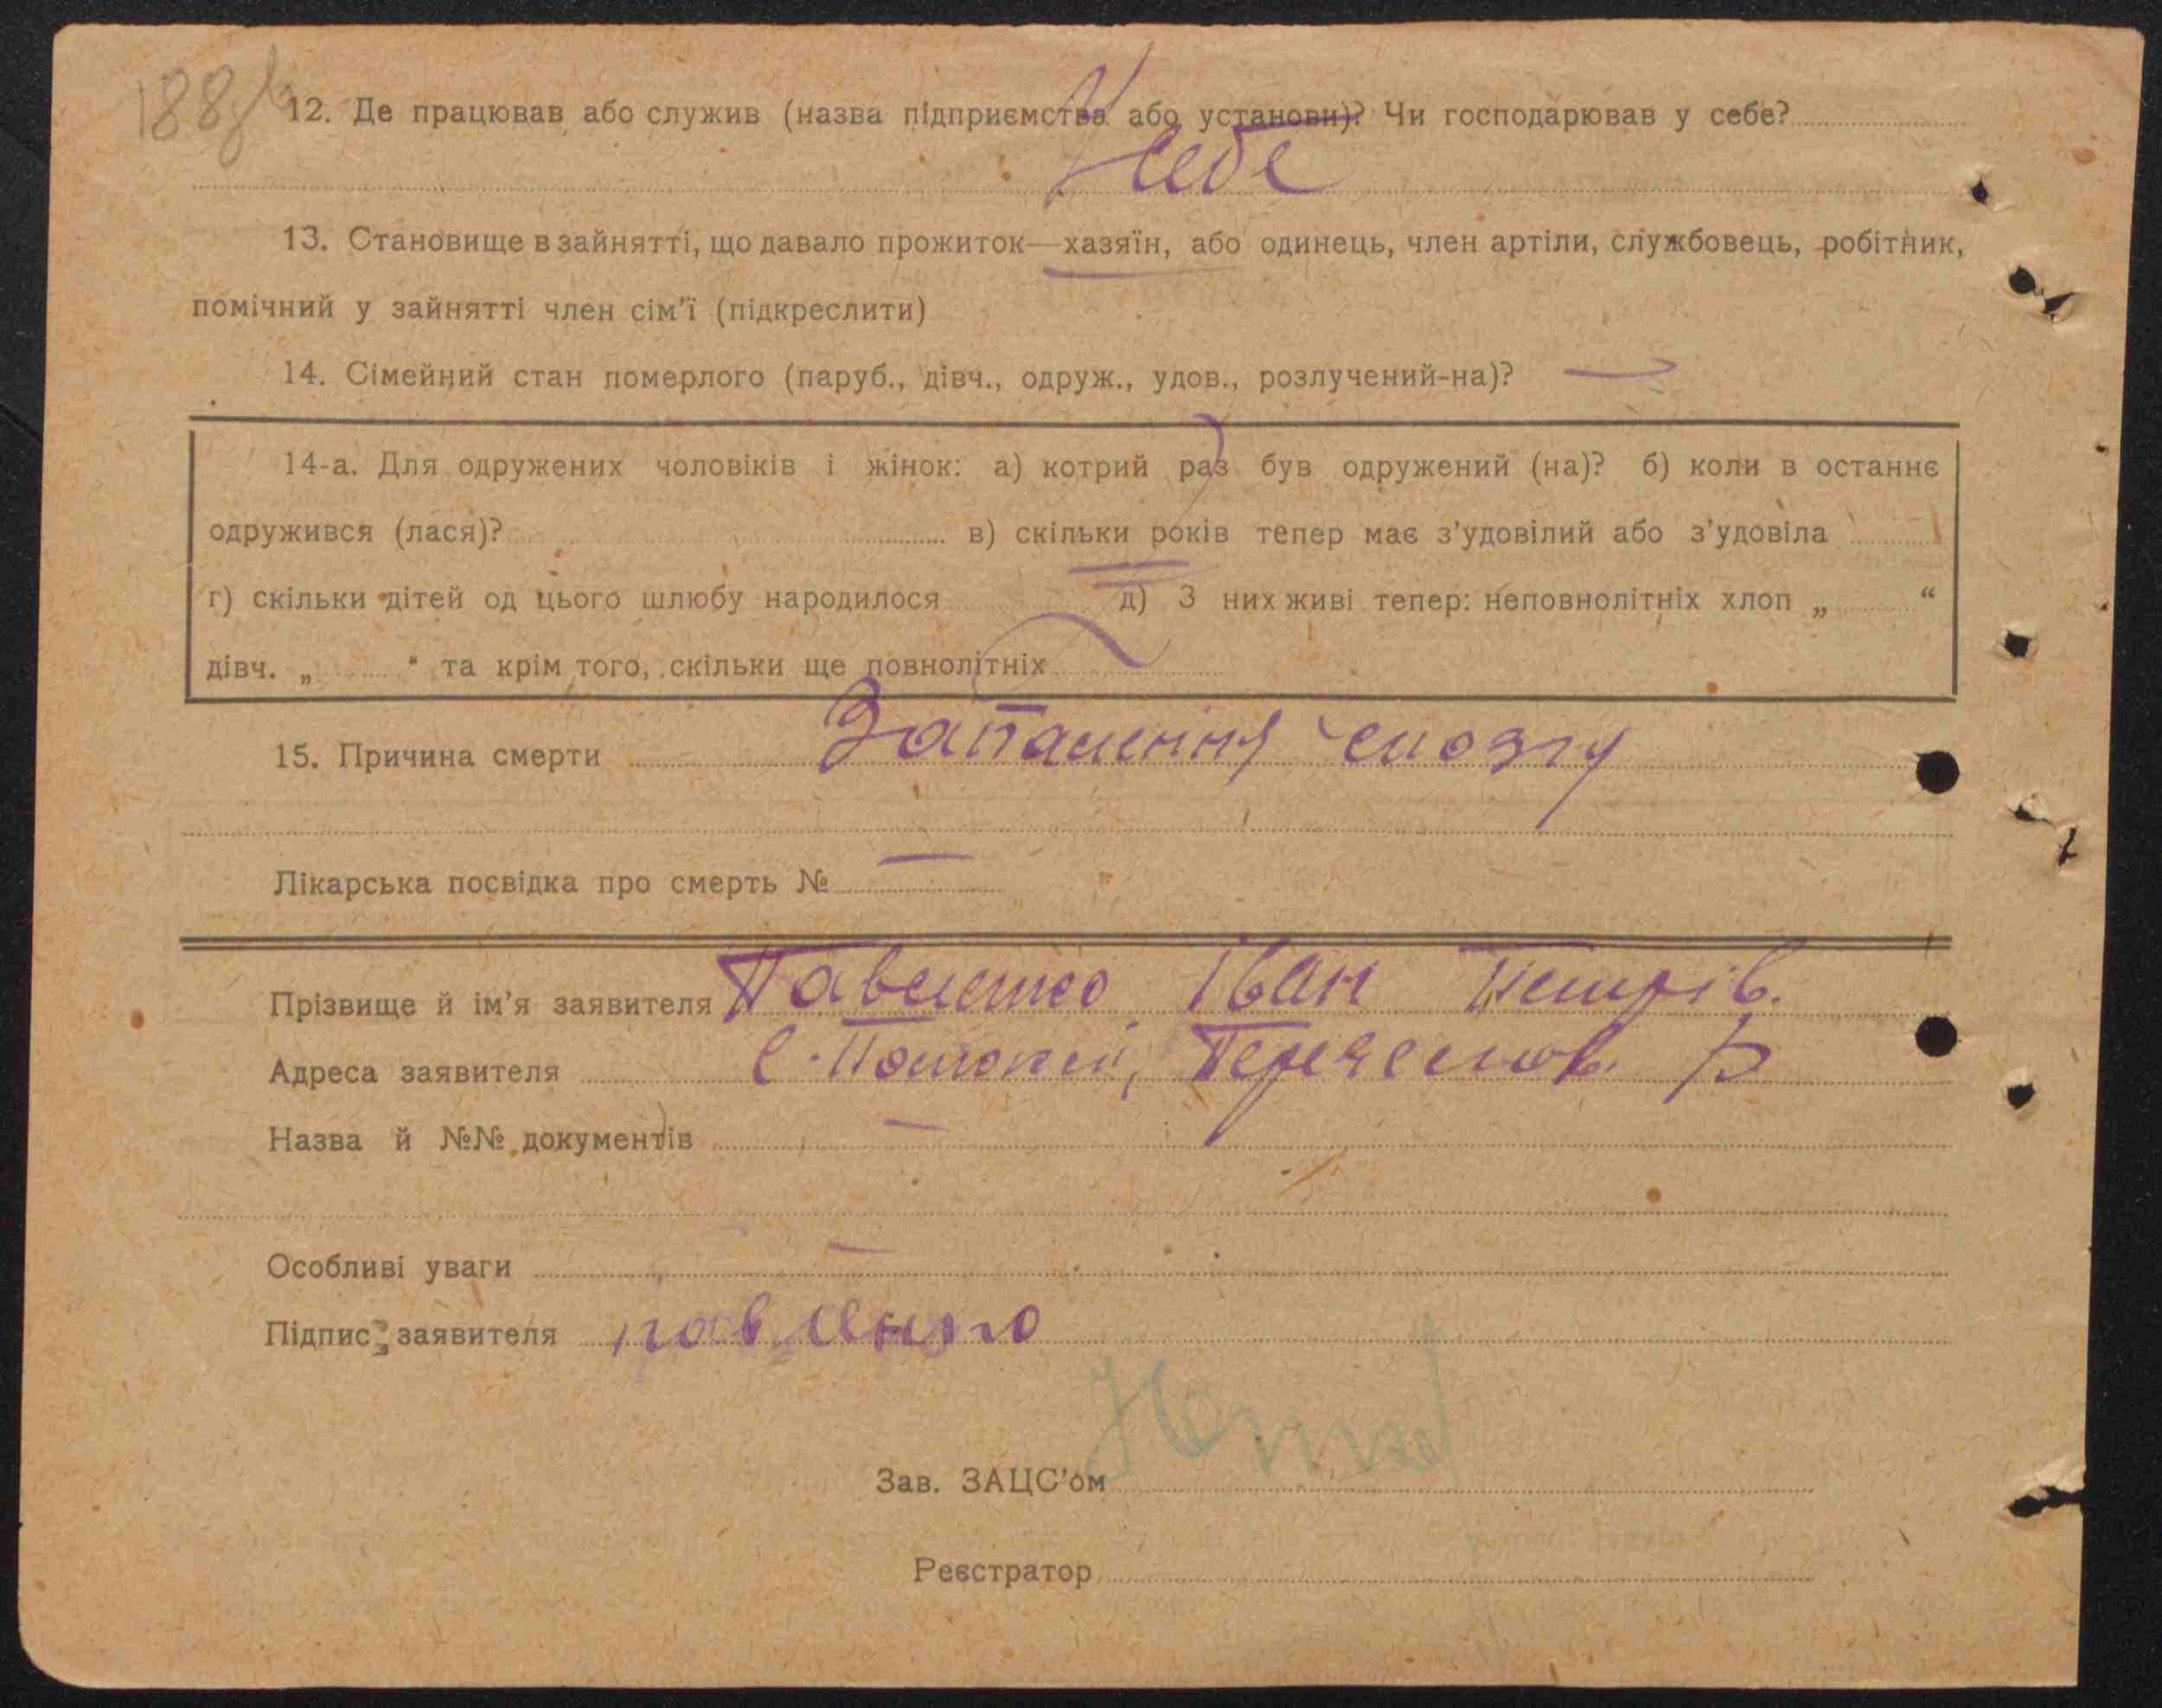 188
12. Де працював або служив (назва підприємства або установи)? Чи господарював у себе?
У себе
13. Становище в зайнятті, що давало прожиток—хазяїн, або одинець, член артіли, службовець, робітник,
помічний у зайнятті член сім'ї (підкреслити)
14. Сімейний стан померлого (паруб., дівч., одруж., удов., розлучений-на)? —
14-а. Для одружених чоловіків і жінок: а) котрий раз був одружений (на)? б) коли в останнє
одружився (лася)? в) скільки років тепер має з'удовілий або з'удовіла
г) скільки дітей од цього шлюбу народилося д) З них живі тепер: неповнолітніх хлоп „ “
дівч. „ “ та крім того, скільки ще повнолітніх
15. Причина смерти Запалення мозгу
Лікарська посвідка про смерть № —
Прізвище й ім'я заявителя Павленко Іван Петрів.
Адреса заявителя с. Переяслов. Р
Назва й №№ документів —
Особливі уваги —
Підпис заявителя павленко
Зав. ЗАЦС'ом
Реєстратор